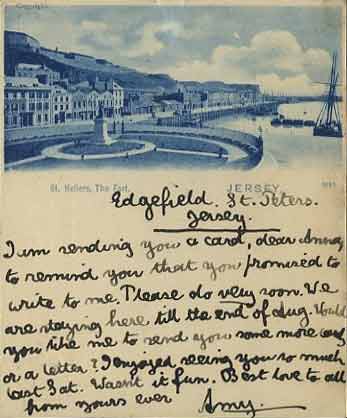 Copyright.
St. Heliers, The Fort.
JERSEY.
Edgefield. St. Peters.
Jersey.
I am sending you a card, dear Anna,
to remind you that you promised to
write to me. Please do very soon. We
are staying here till the end of Aug. Would
you like me to send you some more cards
or a letter? I enjoyed seeing you so much
last Sat. Wasn't it fun. Best love to all
from yours ever Amy.